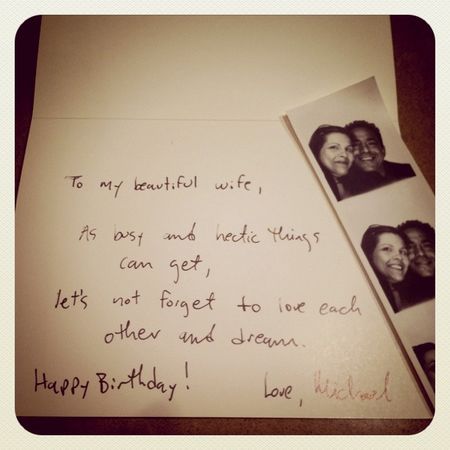 To my beautiful wife,
As busy and hectic things
can get,
let's not forget to love each
other and dream.
Happy Birthday!
Love, Michael